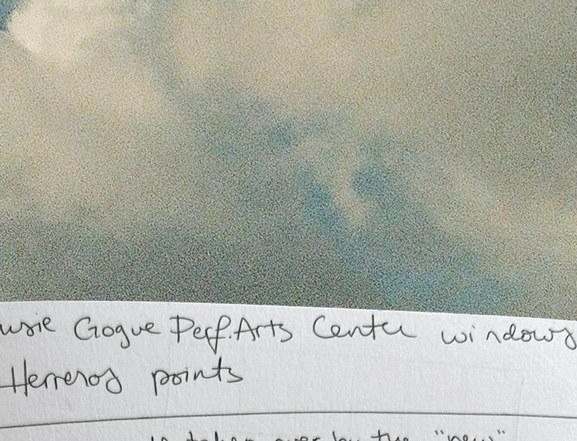 usie Gogue Perf.Arts Center windows
Herreros points
is taken over by the "new"